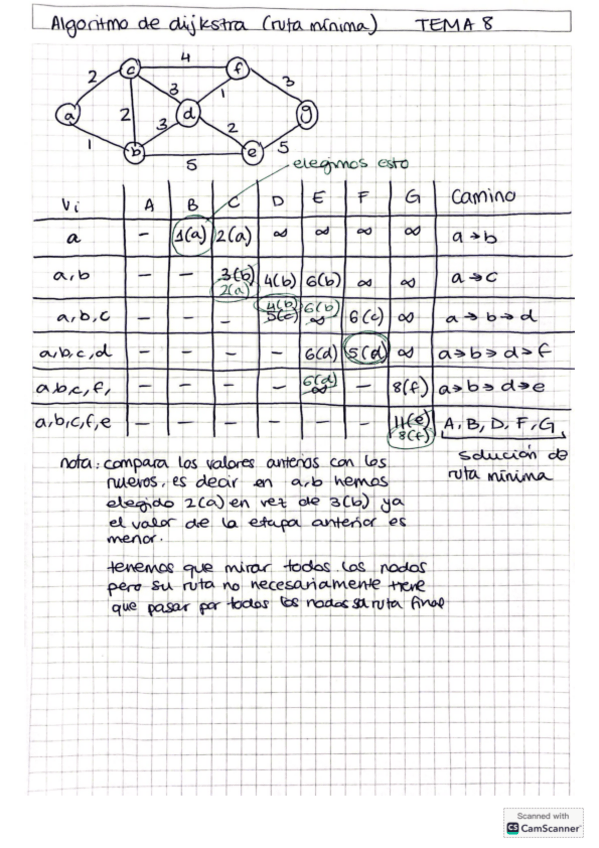 Algoritmo de dijkstra (ruta mínima) TEMA 8
4
2 c f
3 1 3
a 2 d g
1 3 2
b e 5
5
elegimos esto
Vi A B C D E F G Camino
a – 1(a) 2(a) ∞ ∞ ∞ ∞ a→b
a,b – – 3(b) 4(b) 6(b) ∞ ∞ a→c
2(a)
a,b,c – – – 4(b) 6(b) 6(c) ∞ a→b→d
5(c) ∞
a,b,c,d – – – – 6(d) 5(d) ∞ a→b→d→f
a,b,c,f, – – – – 6(d) – 8(f) a→b→d→e
∞
a,b,c,f,e – – – – – – 11(e) A, B, D, F, G
8(f)
solución de
ruta mínima
nota: compara los valores anterios con los
nuevos, es decir en a,b hemos
elegido 2(a) en vez de 3(b) ya
el valor de la etapa anterior es
menor.
tenemos que mirar todos los nodos
pero su ruta no necesariamente tiene
que pasar por todos los nodos ruta final
Scanned with
CS CamScanner